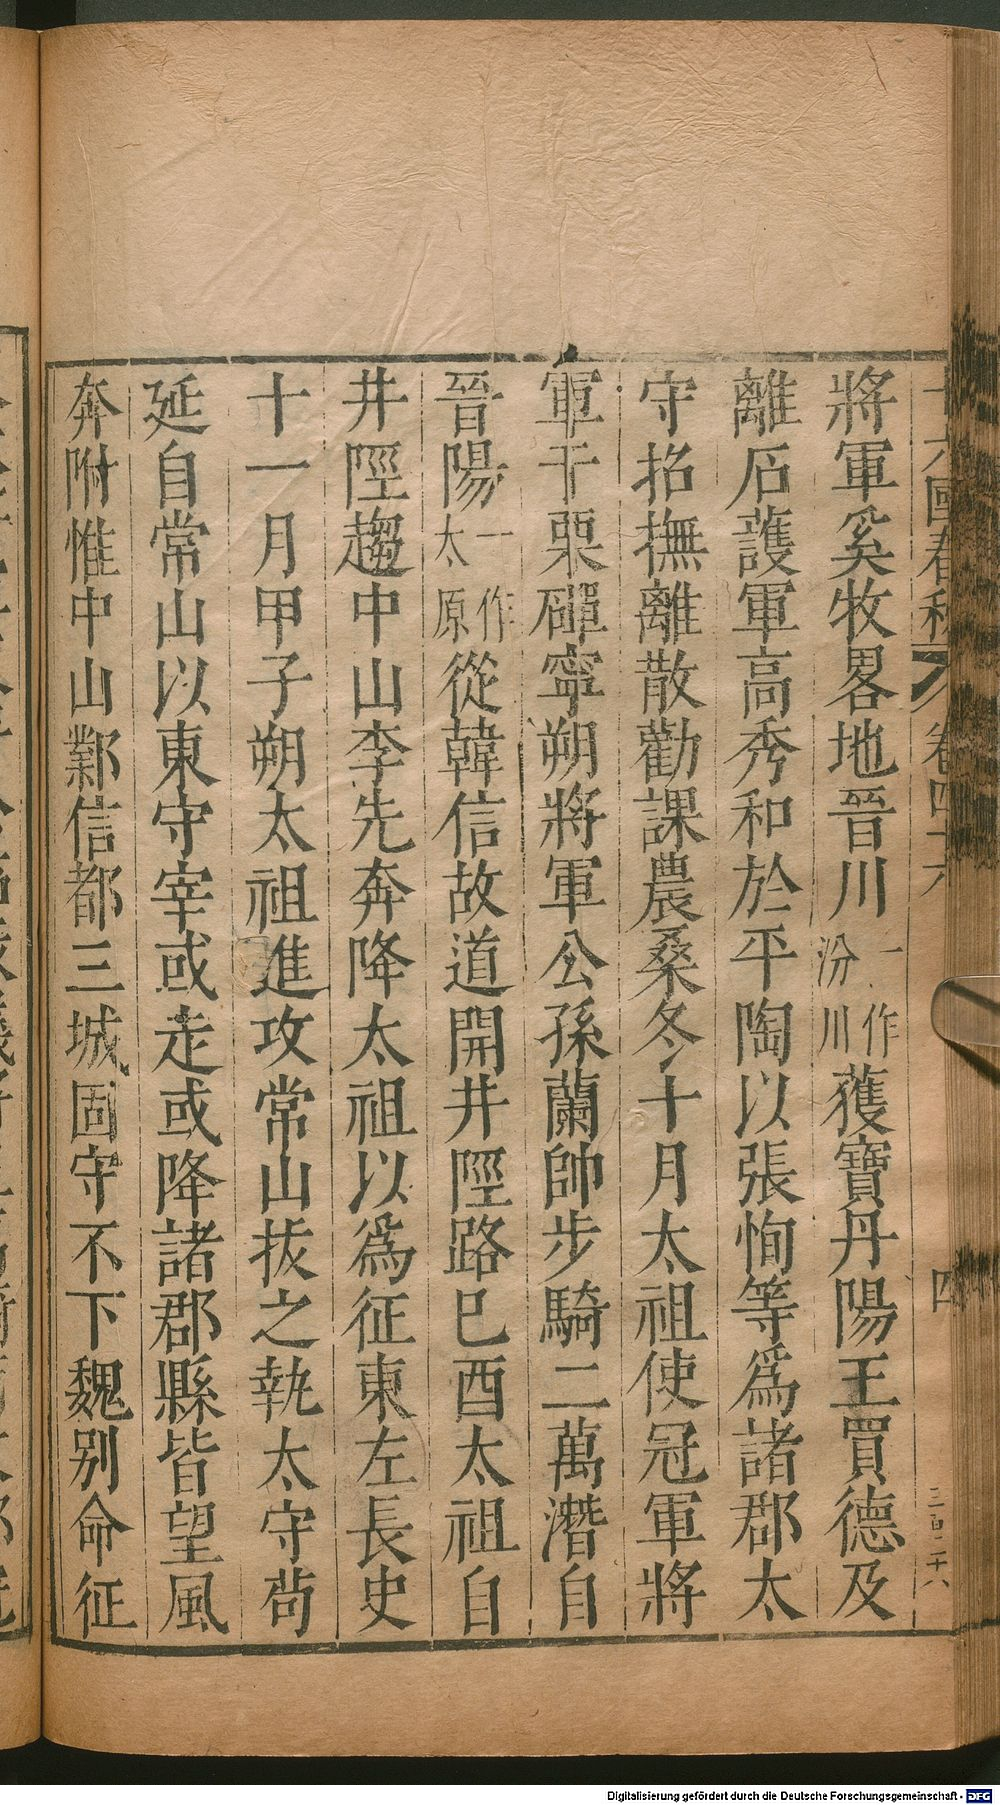 將軍奚牧畧地晉川一作汾川獲寶丹陽王買德及
離石護軍高秀和於平陶以張恂等爲諸郡太
守招撫離散勸課農桑冬十月太祖使冠軍將
軍于栗磾寧朔將軍公孫蘭帥步騎二萬潛自
晉陽一作太原從韓信故道開井陘路巳酉太祖自
井陘趨中山李先奔降太祖以爲征東左長史
十一月甲子朔太祖進攻常山拔之執太守茍
延自常山以東守宰或走或降諸郡縣皆望風
奔附惟中山鄴信都三城固守不下魏别命征
十六國春秋 卷四十六 四 三百二十八
Digitalisierung gefördert durch die Deutsche Forschungsgemeinschaft - DFG